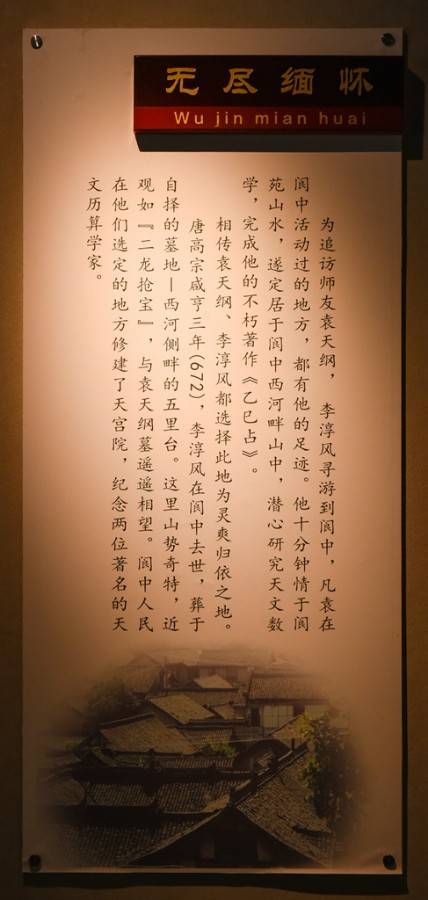 无尽缅怀
Wu jin mian huai
为追访师友袁天纲，李淳风寻游到阆中，凡袁在
阆中活动过的地方，都有他的足迹。他十分钟情于阆
苑山水，遂定居于阆中西河畔山中，潜心研究天文数
学，完成他的不朽著作《乙巳占》。
相传袁天纲、李淳风都选择此地为灵爽归依之地。
唐高宗咸亨三年(672)，李淳风在阆中去世，葬于
自择的墓地—西河侧畔的五里台。这里山势奇特，近
观如『二龙抢宝』，与袁天纲墓遥遥相望。阆中人民
在他们选定的地方修建了天宫院，纪念两位著名的天
文历算学家。